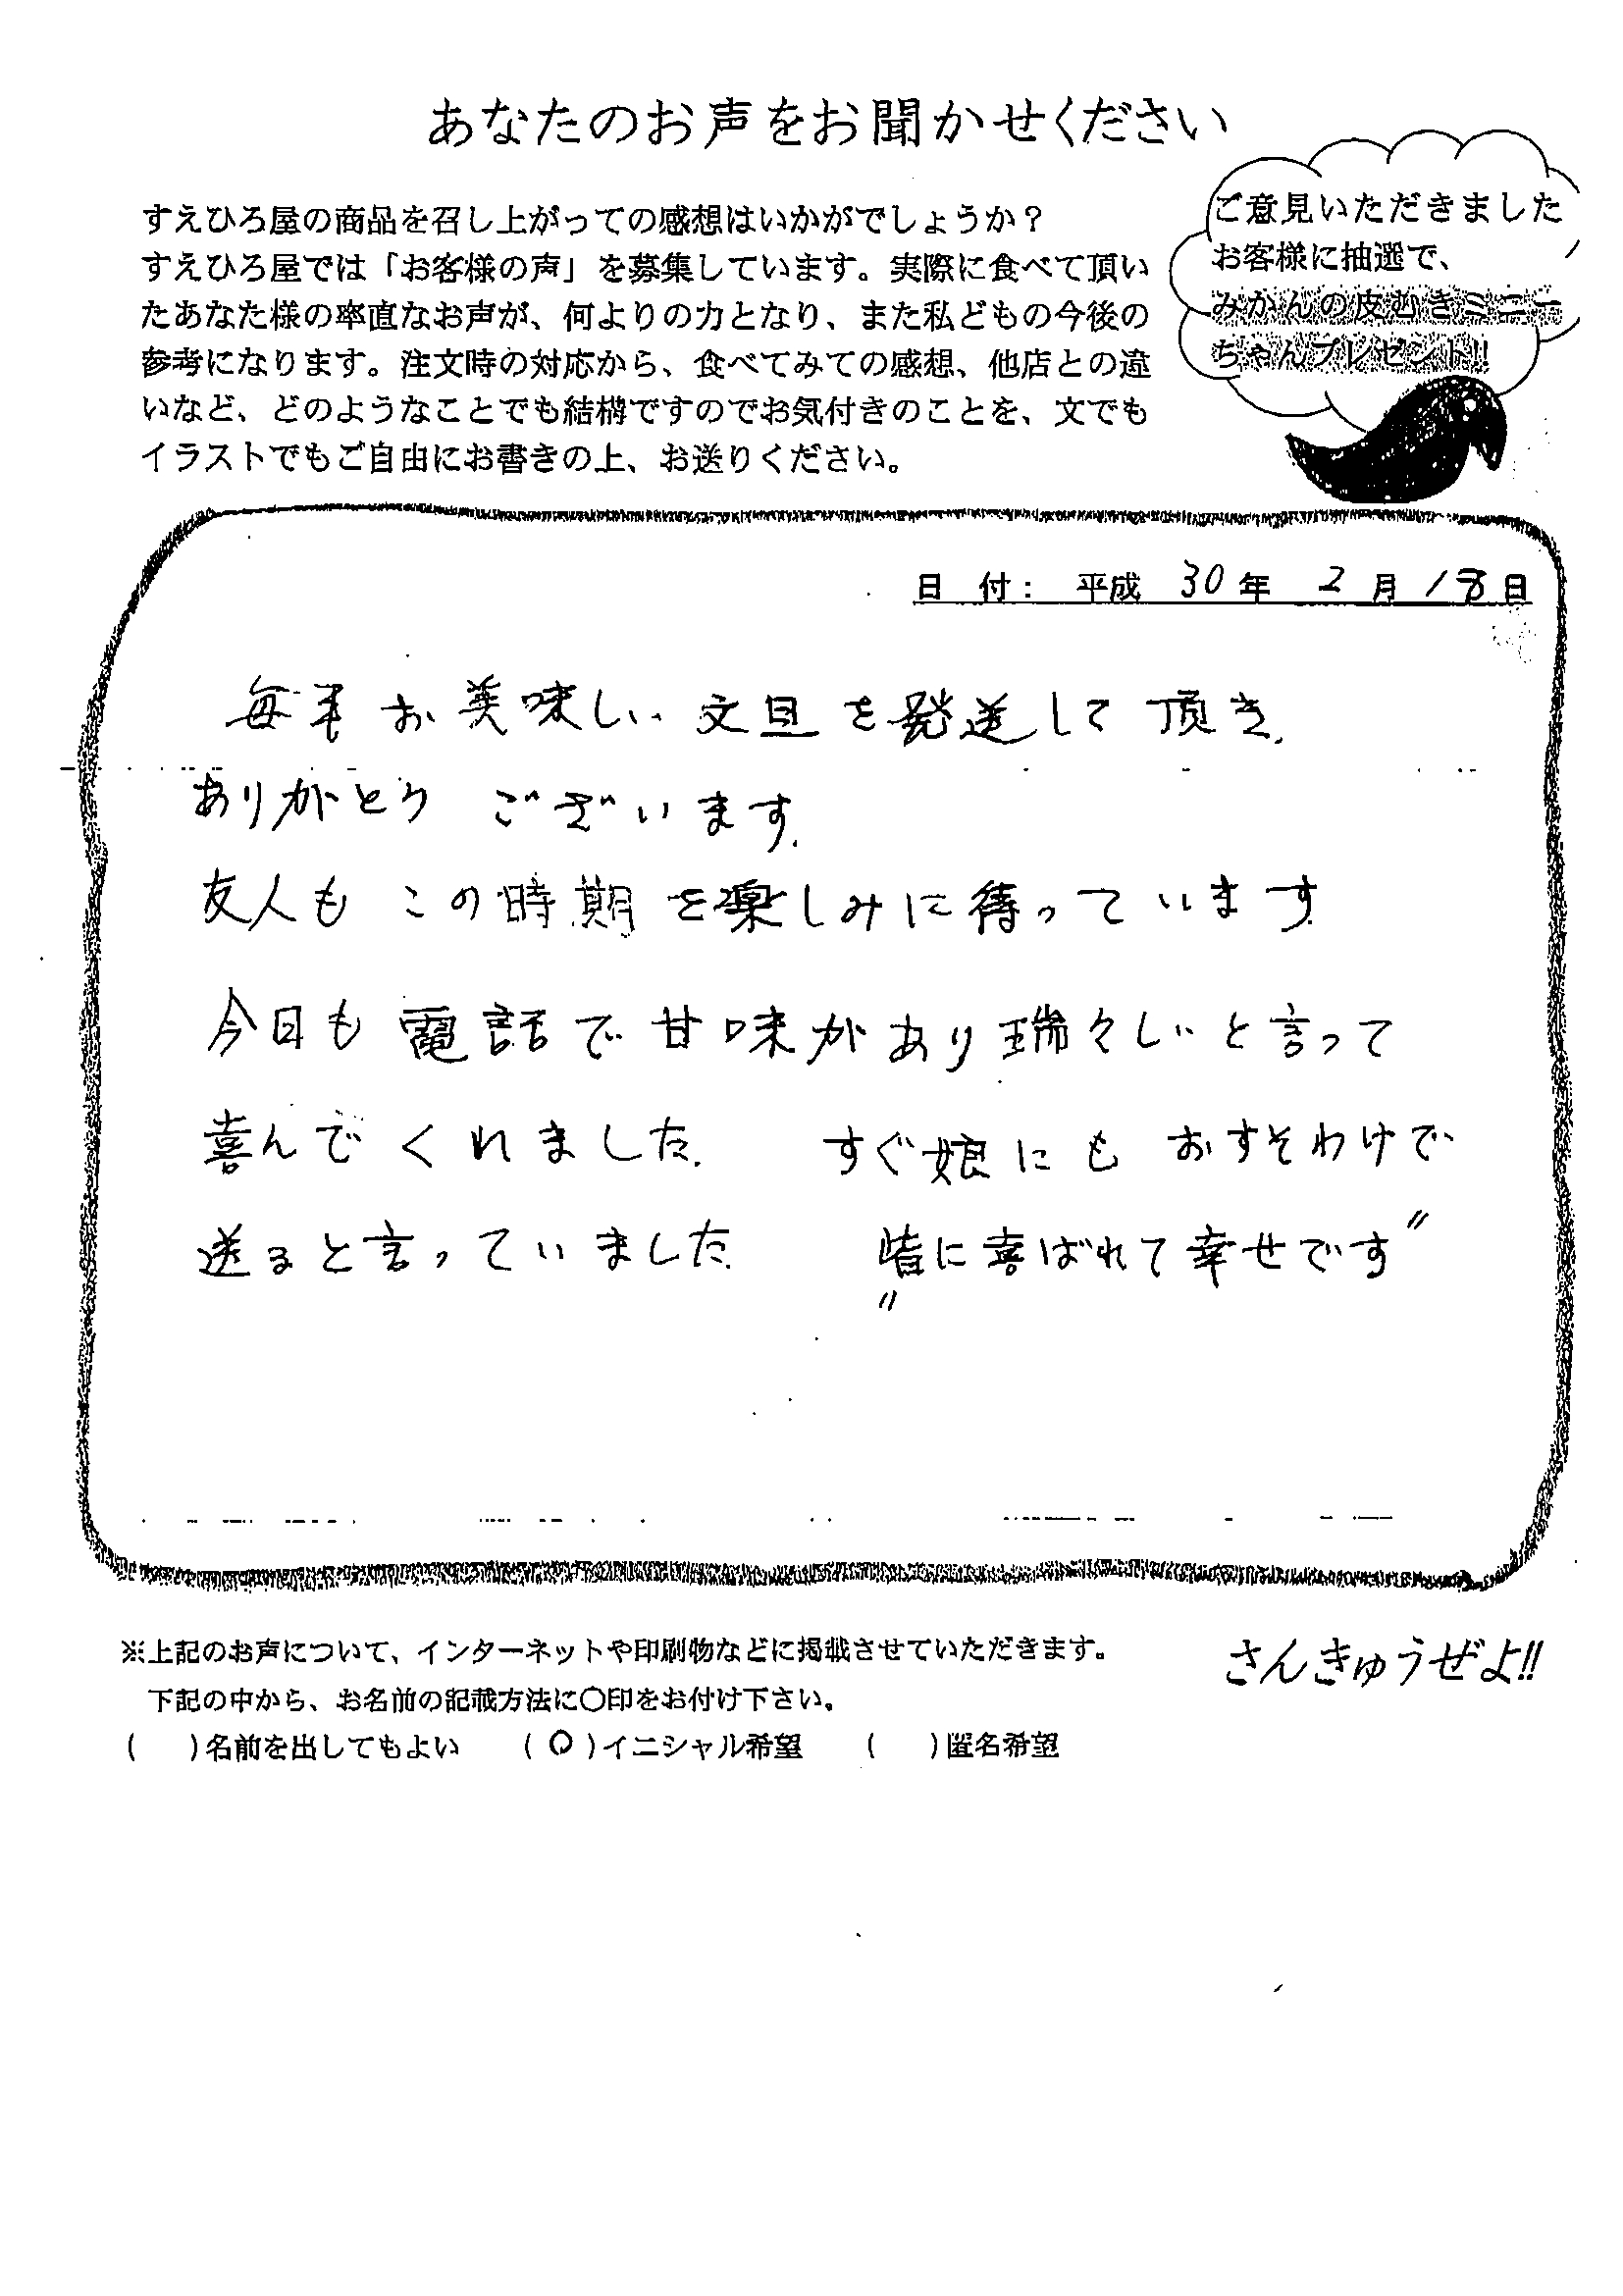 あなたのお声をお聞かせください
すえひろ屋の商品を召し上がっての感想はいかがでしょうか？
すえひろ屋では「お客様の声」を募集しています。実際に食べて頂い
たあなた様の率直なお声が、何よりの力となり、また私どもの今後の
参考になります。注文時の対応から、食べてみての感想、他店との違
いなど、どのようなことでも結構ですのでお気付きのことを、文でも
イラストでもご自由にお書きの上、お送りください。
ご意見いただきました
お客様に抽選で、
みかんの皮むきミニー
ちゃんプレゼント!!
日 付： 平成 30 年 2 月 18 日
毎年お美味しい文旦を発送して頂き、
ありがとうございます。
友人もこの時期を楽しみに待っています
今日も電話で甘味があり瑞々しいと言って
喜んでくれました。 すぐ娘にもおすそわけで
送ると言っていました。 〃皆に喜ばれて幸せです〃
※上記のお声について、インターネットや印刷物などに掲載させていただきます。
下記の中から、お名前の記載方法に〇印をお付け下さい。
( )名前を出してもよい (〇)イニシャル希望 ( )匿名希望
さんきゅうぜよ!!